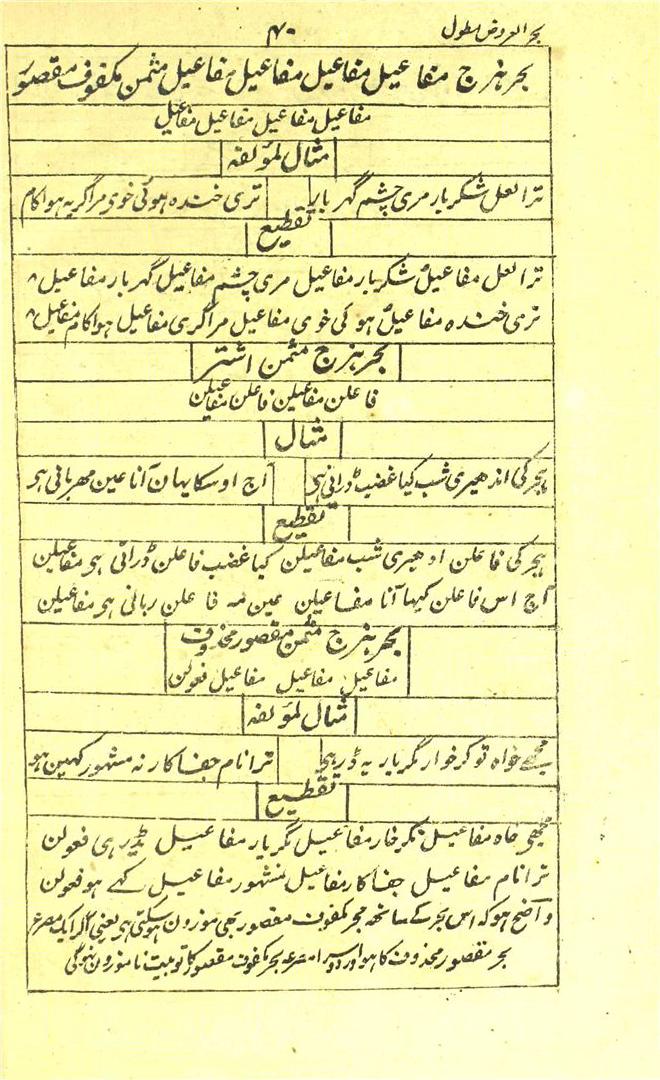 بحر العروض مطول
۴۰
بحر ہزج مفاعیل مفاعیل مفاعیل مفاعیل مثمن مکفوف مقصور
مفاعیل مفاعیل مفاعیل مفاعیل
مثال لمؤلفہ
ترا لعل شکر بار مری چشم گہر بار تری خندہ ہوئی خوی مرا گریہ ہوا کام
تقطیع
ترا لعل مفاعیل شکر بار مفاعیل مری چشم مفاعیل گہر بار مفاعیل
تری خندہ مفاعیل ہو ئی خوی مفاعیل مرا گری مفاعیل ہوا کام مفاعیل
بحر ہزج مثمن اشتر
فاعلن مفاعیلن فاعلن مفاعیلن
مثال
ہجر کی اندھیری شب کیا غضب ڈرانی ہی آج اوسکا یہان آنا عین مہربانی ہو
تقطیع
ہجر کی فاعلن اندھیری شب مفاعیلن کیا غضب فاعلن ڈرانی ہو مفاعیلن
آج اس فاعلن کیہا آنا مفاعیلن عین مہ فاعلن ربانی ہو مفاعیلن
بحر ہزج مثمن مقصور محذوف
مفاعیل مفاعیل مفاعیل فعولن
مثال لمؤلفہ
مجھے خواہ تو کر خوار مگر یار یہ ڈر ہی ترا نام جفا کار نہ مشہور کہین ہو
تقطیع
مجھی خاہ مفاعیل تکر خار مفاعیل مگر یار مفاعیل یڈر ہی فعولن
ترا نام مفاعیل جفا کار مفاعیل نمشہور مفاعیل کہے ہو فعولن
واضح ہو کہ اس بحر کے ساتھہ بحر مکفوف مقصور بھی موزون ہوسکتی ہو یعنی اگر ایک مصرع
بحر مقصور محذوف کا ہو اور دوسرا مصرعہ بحر مکفوف مقصور کا تو بیت ناموزون نہوگی